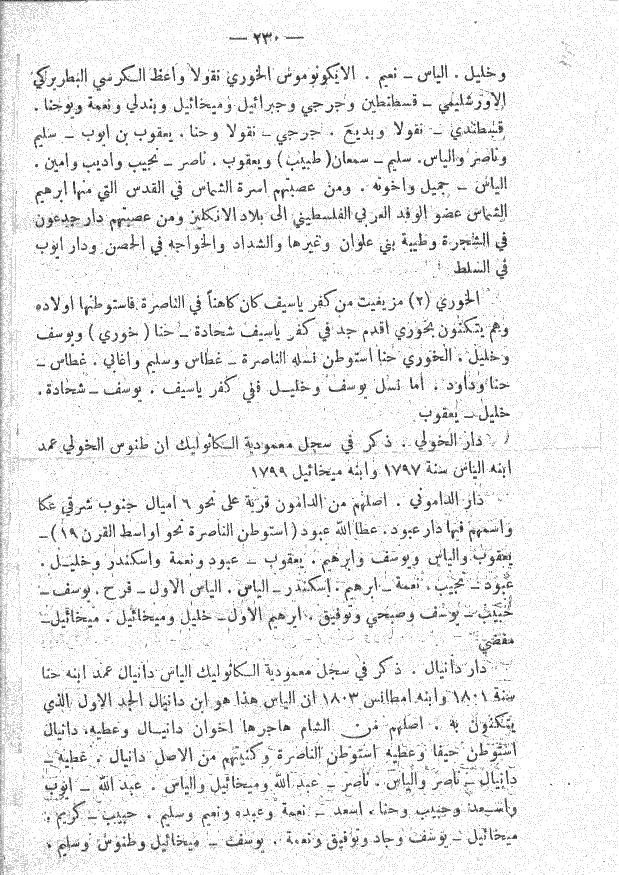 — ٢٣٠ —
وخليل . الياس – نعيم . الايكونوموش الخوري نقولا واعظ الكرسي البطريركي
الاورشليمي – قسطنطين وجرجي وجبرائيل وميخائيل وبندلي ونعمة ويوحنا .
قسطندي – نقولا وبديع . جرجي – نقولا وحنا . يعقوب بن ايوب – سليم
وناصر والياس. سليم – سمعان (طبيب) ويعقوب . ناصر – نجيب واديب وامين .
الياس – جميل واخوته . ومن عصبتهم اسرة الشماس في القدس التي منها ابرهيم
الشماس عضو الوفد العربي الفلسطيني الى بلاد الانكليز ومن عصبتهم دار جدعون
في الشجرة وطيبة بني علوان وغيرها والشداد والخواجه في الحصن ودار ايوب
في السلط
الخوري (٢) مزيفيت من كفر ياسيف كان كاهناً في الناصرة فاستوطنها اولاده
وهم يتكنون بخوري اقدم جد في كفر ياسيف شحادة – حنا (خوري) ويوسف
وخليل . الخوري حنا استوطن نسله الناصرة – غطاس وسليم واغابي . غطاس –
حنا وداود . أما نسل يوسف وخليل ففي كفر ياسيف . يوسف – شحادة .
خليل – يعقوب
دار الخولي . ذكر في سجل معمودية الكاثوليك ان طنوس الخولي عمد
ابنه الياس سنة ١٧٩٧ وابنه ميخائيل ١٧٩٩
دار الداموني . اصلهم من الدامون قرية على نحو ٦ اميال جنوب شرقي عكا
واسمهم فيها دار عبود . عطا الله عبود (استوطن الناصرة نحو اواسط القرن ١٩) –
يعقوب والياس ويوسف وابرهيم . يعقوب – عبود ونعمة واسكندر وخليل .
عبود – نجيب . نعمة – ابرهيم . اسكندر – الياس . الياس الاول – فرح . يوسف –
حبيب – يوسف وصبحي وتوفيق . ابرهيم الاول – خليل وميخائيل . ميخائيل –
مفضي
دار دانيال . ذكر في سجل معمودية الكاثوليك الياس دانيال عمد ابنه حنا
سنة ١٨٠١ وابنه امطانس ١٨٠٣ ان الياس هذا هو ابن دانيال الجد الاول الذي
يتكنون به . اصلهم من الشام هاجرها اخوان دانيال وعطيه، دانيال
استوطن حيفا وعطيه استوطن الناصرة وكنيتهم من الاصل دانيال . عطيه –
دانيال – ناصر والياس . ناصر – عبد الله وميخائيل والياس . عبد الله – ايوب
واسعد وحبيب وحنا . اسعد – نعمة وعبده ونعيم وسليم . حبيب – كريم .
ميخائيل – يوسف وجاد وتوفيق ونعمة . يوسف – ميخائيل وطنوس وسليم .